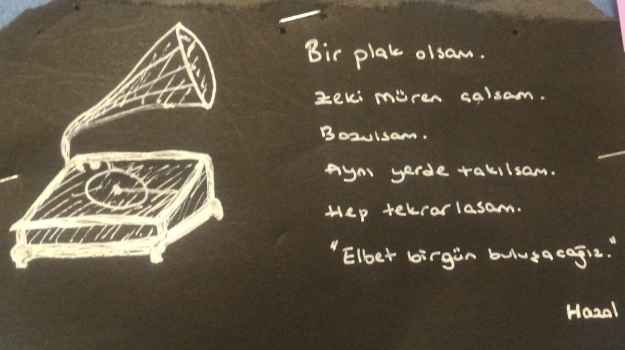 Bir plak olsam.
Zeki Müren çalsam.
Bozulsam.
Aynı yerde takılsam.
Hep tekrarlasam.
"Elbet birgün buluşacağız."
Hazal